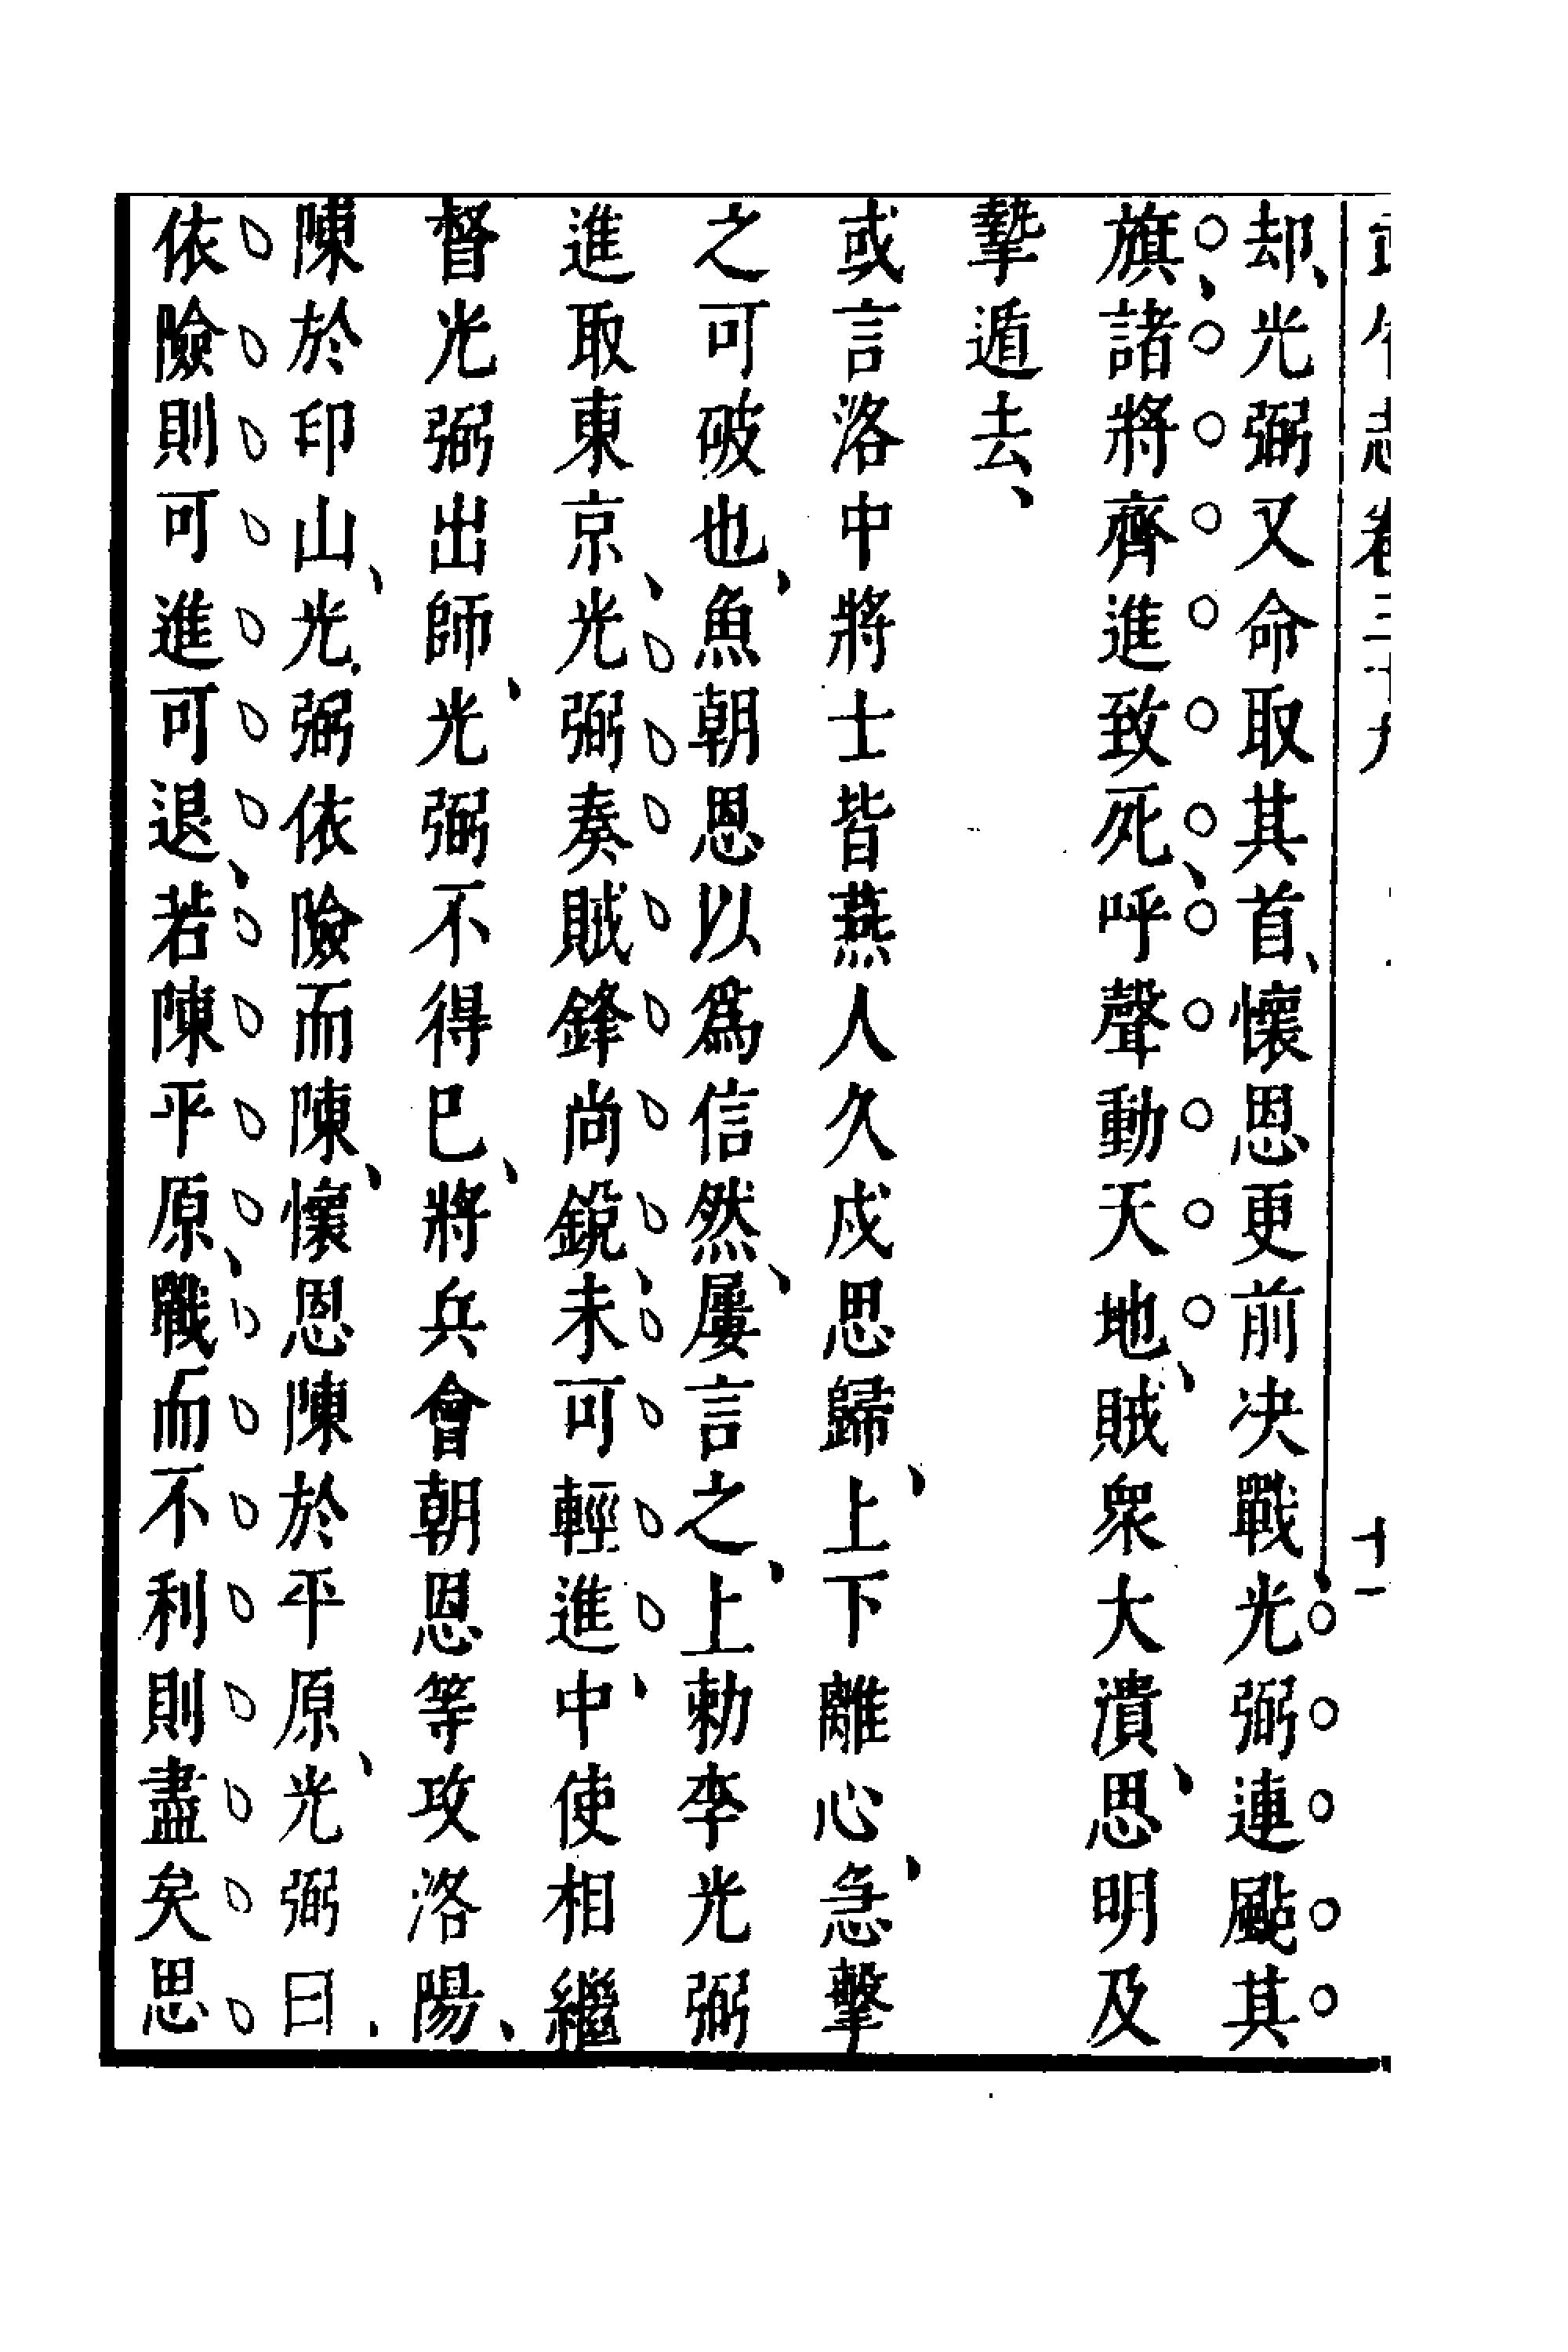 却、光弼又命取其首、懷恩更前决戰、光弼連颭其
旗、諸將齊進致死、呼聲動天地、賊衆大潰、思明及
摯遁去、
或言洛中將士皆燕人久戍思歸、上下離心、急擊
之可破也、魚朝恩以爲信然、屢言之、上勅李光弼
進取東京、光弼奏賊鋒尚銳、未可輕進、中使相繼
督光弼出師、光弼不得巳、將兵會朝恩等攻洛陽、
陳於印山、光弼依險而陳、懷恩陳於平原、光弼曰、
依險則可進可退、若陳平原、戰而不利則盡矣思